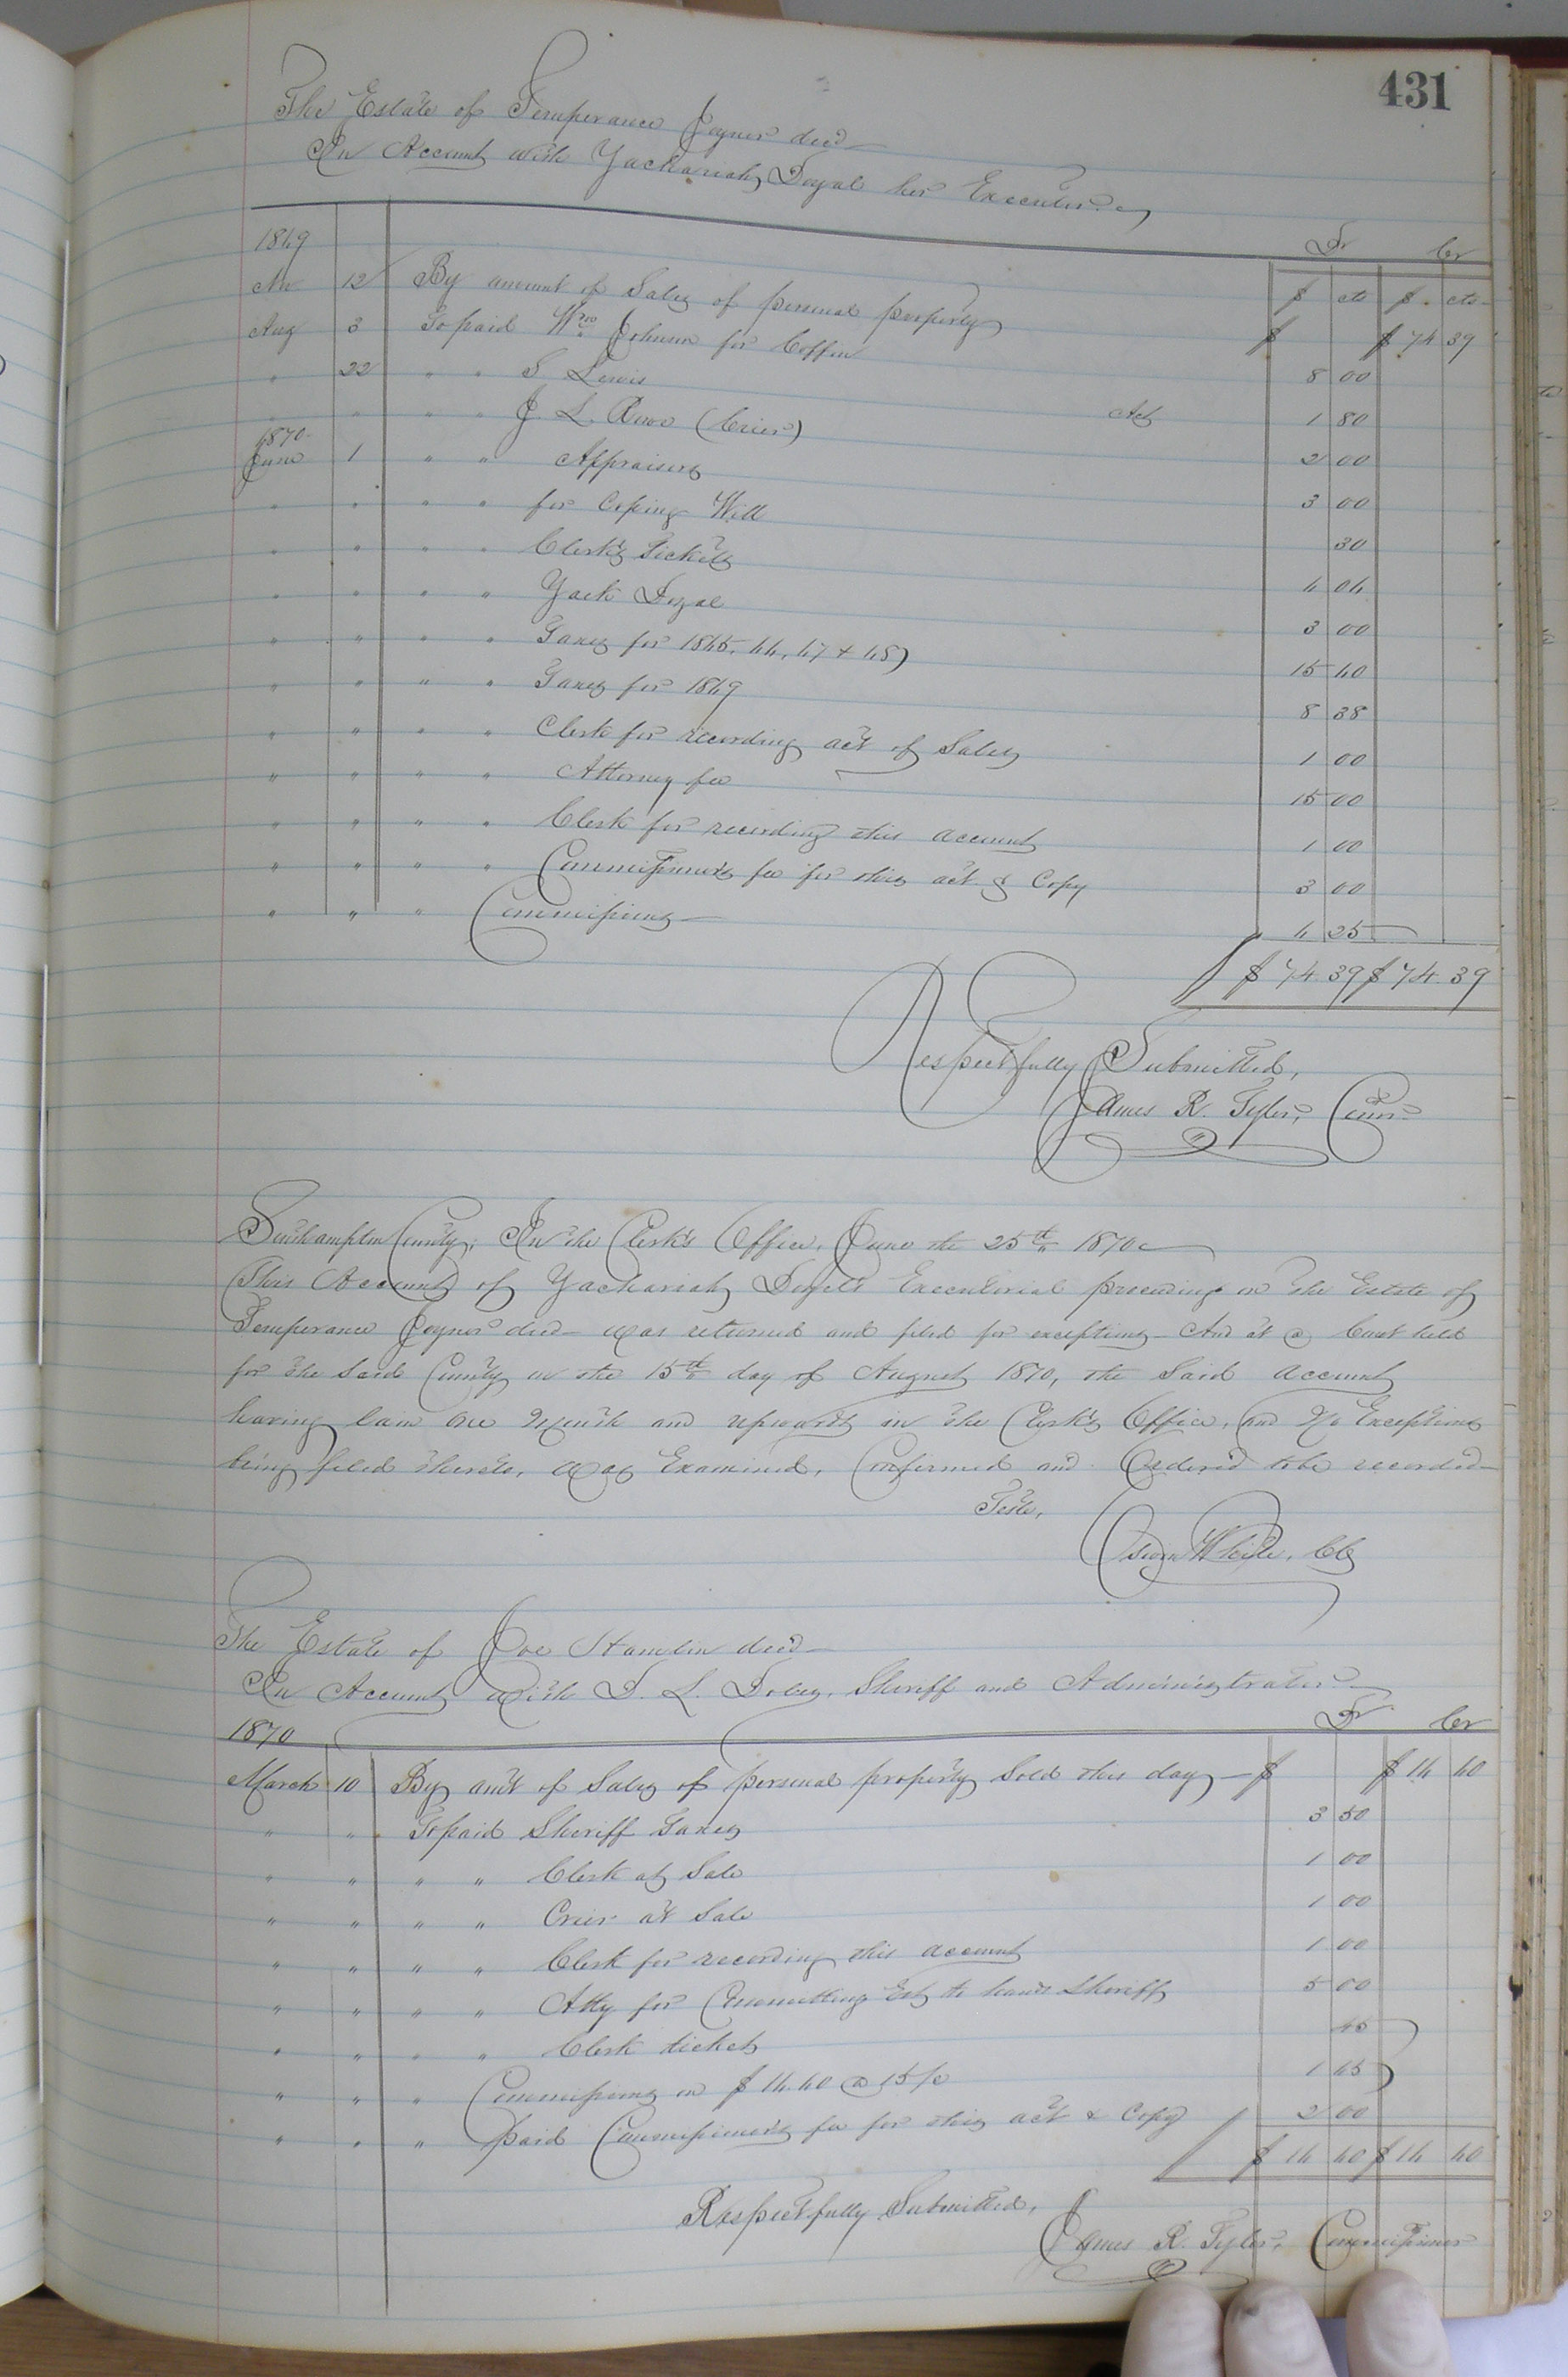 431
The Estate of Temperance Joyner decd
In Account with Zachariah Doyal her Executor
Dr Cr
1869
$ cts $ cts
Nov 12 By amount of Sales of personal property $ $ 74 39
Aug 3 To paid Wm Johnson for Coffin 8 00
" 22 " " S Lewis Act 1 80
" " " " J. L. (Crier) 2 00
1870
June 1 " " Appraisers 3 00
" " " " for Coping Will 30
" " " " Clerk's Tickets 6 06
" " " " Zack Doyal 3 00
" " " " Taxes for 1865, 66, 67 & 68) 15 60
" " " " Taxes for 1869 8 38
" " " " Clerk for recording act of Sales 1 00
" " " " Attorney fee 15 00
" " " " Clerk for recording this account 1 00
" " " " Commissioner's fee for this act & Copy 3 00
" " " Commissions 6 25
$ 74 39 $ 74 39
Respectfully Submitted,
James R. Tyler, Comr
Southampton County; In the Clerk's Office, June the 25th 1870
This Account of Zachariah Doyal's Executorial proceeding on the Estate of
Temperance Joyner decd was returned and filed for exceptions And at a Court held
for the said County on the 15th day of August 1870, the said account
having lain one Month and upwards in the Clerk's Office, and No Exceptions
being filed thereto, was Examined, Confirmed and Ordered to be recorded
Teste,
White, CC
The Estate of Joe Hamlin decd
In Account with D. L. Sheriff and Administrator
1870 Dr Cr
March 10 By am't of Sales of personal property Sold this day $ $ 16 60
" " To paid Sheriff Taxes 3 50
" " " " Clerk at Sale 1 00
" " " " Crier at Sale 1 00
" " " " Clerk for recording this account 1 00
" " " " Atty for Committing Est to hands Sheriff 5 00
" " " " Clerk ticket 45
" " " Commissions on $ 16.60 @ 1 65
" " " paid Commissioner's fee for this act & Copy 2 00
$ 16 60 $ 16 60
Respectfully Submitted,
James R. Tyler, Commissioner